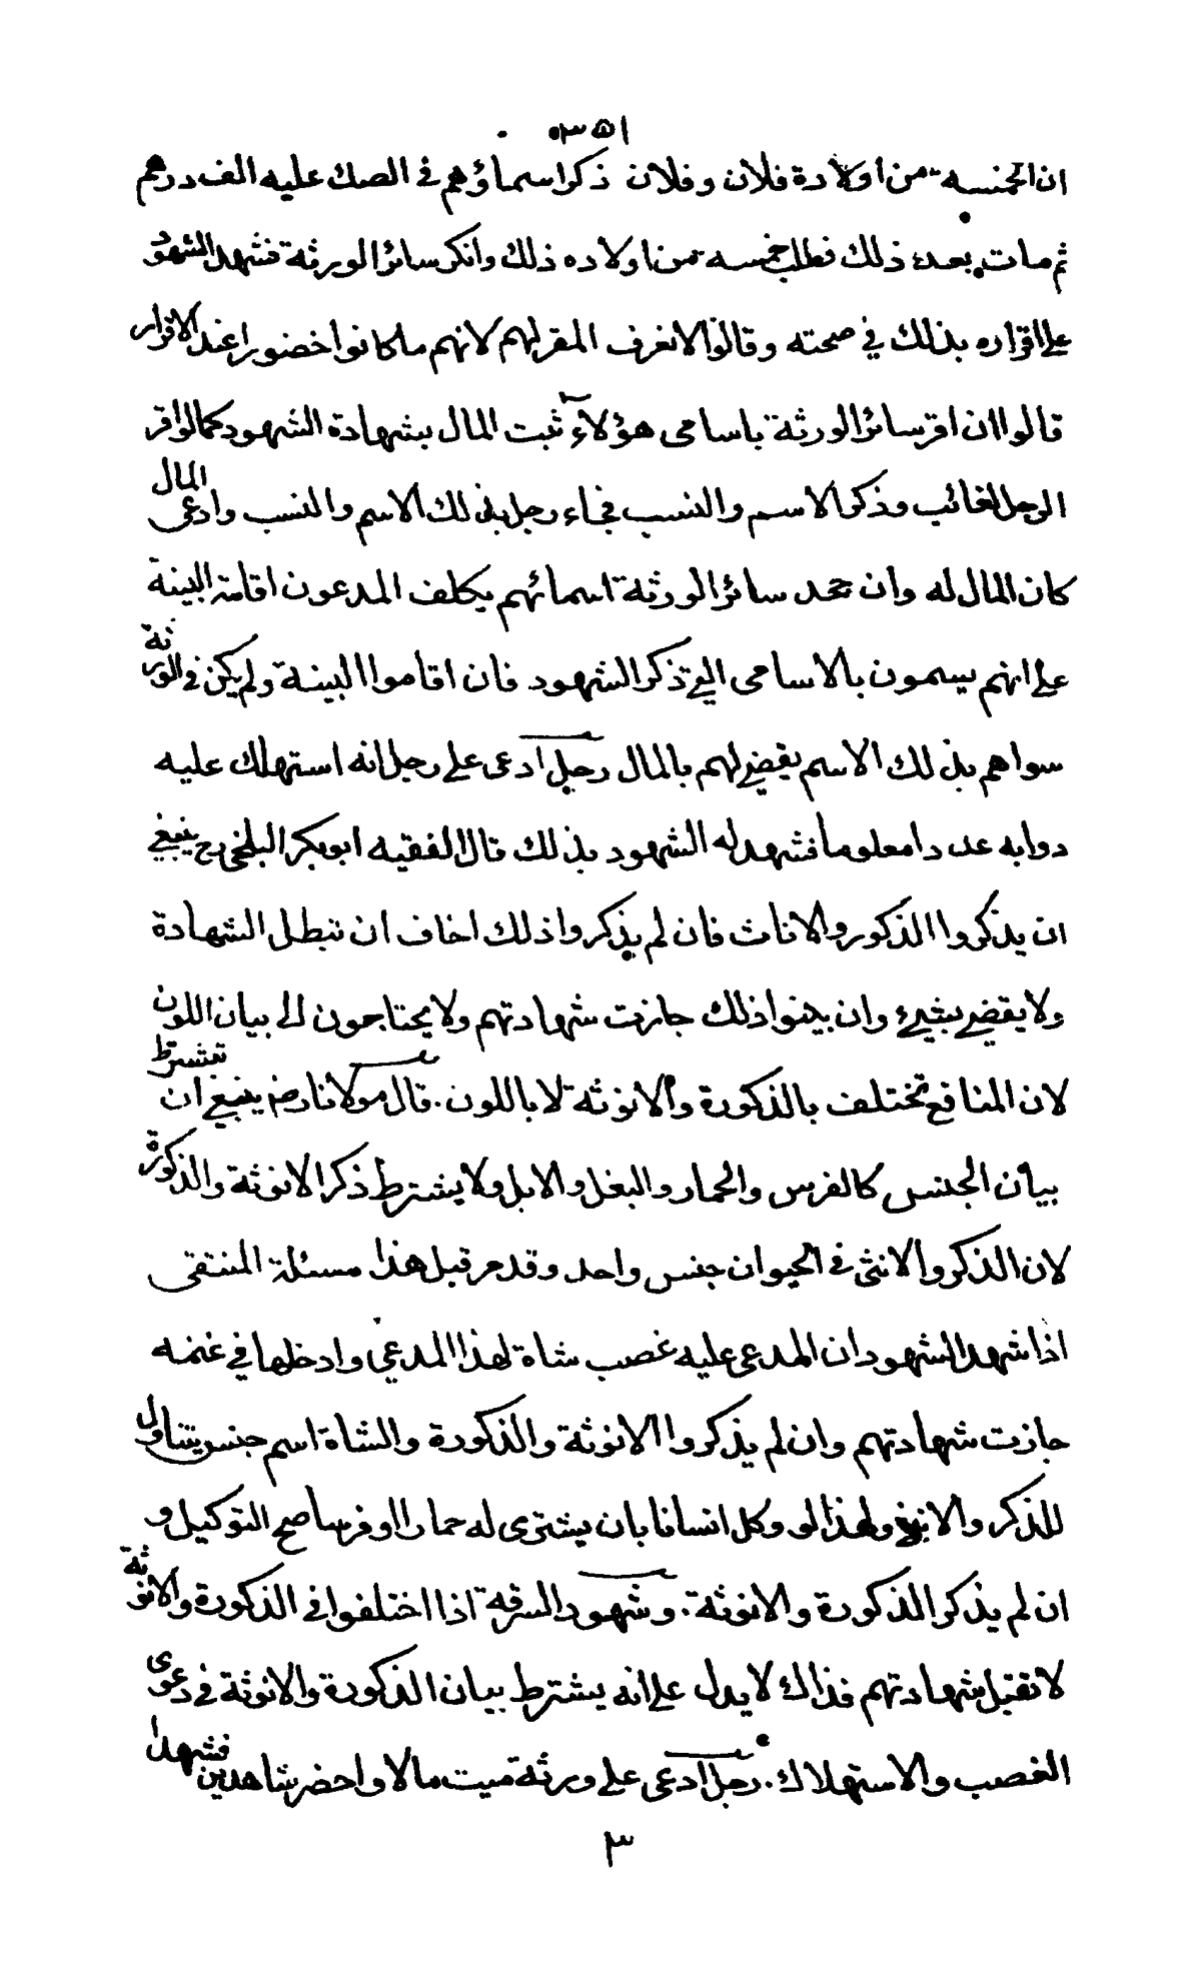 ٣٥١
ان لخمسة من اولاده فلان وفلان ذكر اسماؤهم فى الصك عليه الف درهم
ثم مات بعد ذلك فطلب خمسة من اولاده ذلك وانكر سائر الورثة فشهد الشهود
على اقراره بذلك في صحته وقالوا لا نعرف المقر لهم لانهم ما كانوا حضورا عند الاقرار
قالوا ان اقر سائر الورثة باسامى هؤلاء ثبت المال بشهادة الشهود كما لو اقر
الرجل لغائب وذكر الاسم والنسب فجاء رجل بذلك الاسم والنسب وادعى المال
كان المال له وان جحد سائر الورثة اسمائهم يكلف المدعون اقامة البينة
على انهم يسمون بالاسامى التي ذكر الشهود فان اقاموا البينة ولم يكن في الورثة
سواهم بذلك الاسم يقضى لهم بالمال رجل ادعى على رجل انه استهلك عليه
دوابه عددا معلوما فشهد له الشهود بذلك قال الفقيه ابو بكر البلخى رح ينبغي
ان يذكروا الذكور والاناث فان لم يذكروا ذلك اخاف ان تبطل الشهادة
ولا يقضى بشيء وان بينوا ذلك جازت شهادتهم ولا يحتاجون الى بيان اللون
لان المنافع تختلف بالذكورة والانوثة لا باللون. قال مولانا رض ينبغي ان تشترط
بيان الجنس كالفرس والحمار والبغل والابل ولا يشترط ذكر الانوثة والذكورة
لان الذكر والانثى في الحيوان جنس واحد وقد مر قبل هذا مسئلة المنتقى
اذا شهد الشهود ان المدعى عليه غصب شاة لهذا المدعي وادخلها في غنمه
جازت شهادتهم وان لم يذكروا الانوثة والذكورة والشاة اسم جنس يتناول
للذكر والانثى ولهذا لو وكل انسانا بان يشترى له حمارا او فرسا صح التوكيل و
ان لم يذكر الذكورة والانوثة. وشهود السرقة اذا اختلفوا في الذكورة والانوثة
لا تقبل شهادتهم فذاك لا يدل على انه يشترط بيان الذكورة والانوثة في دعوى
الغصب والاستهلاك. رجل ادعى على ورثة ميت مالا واحضر شاهدين فشهدا
٣